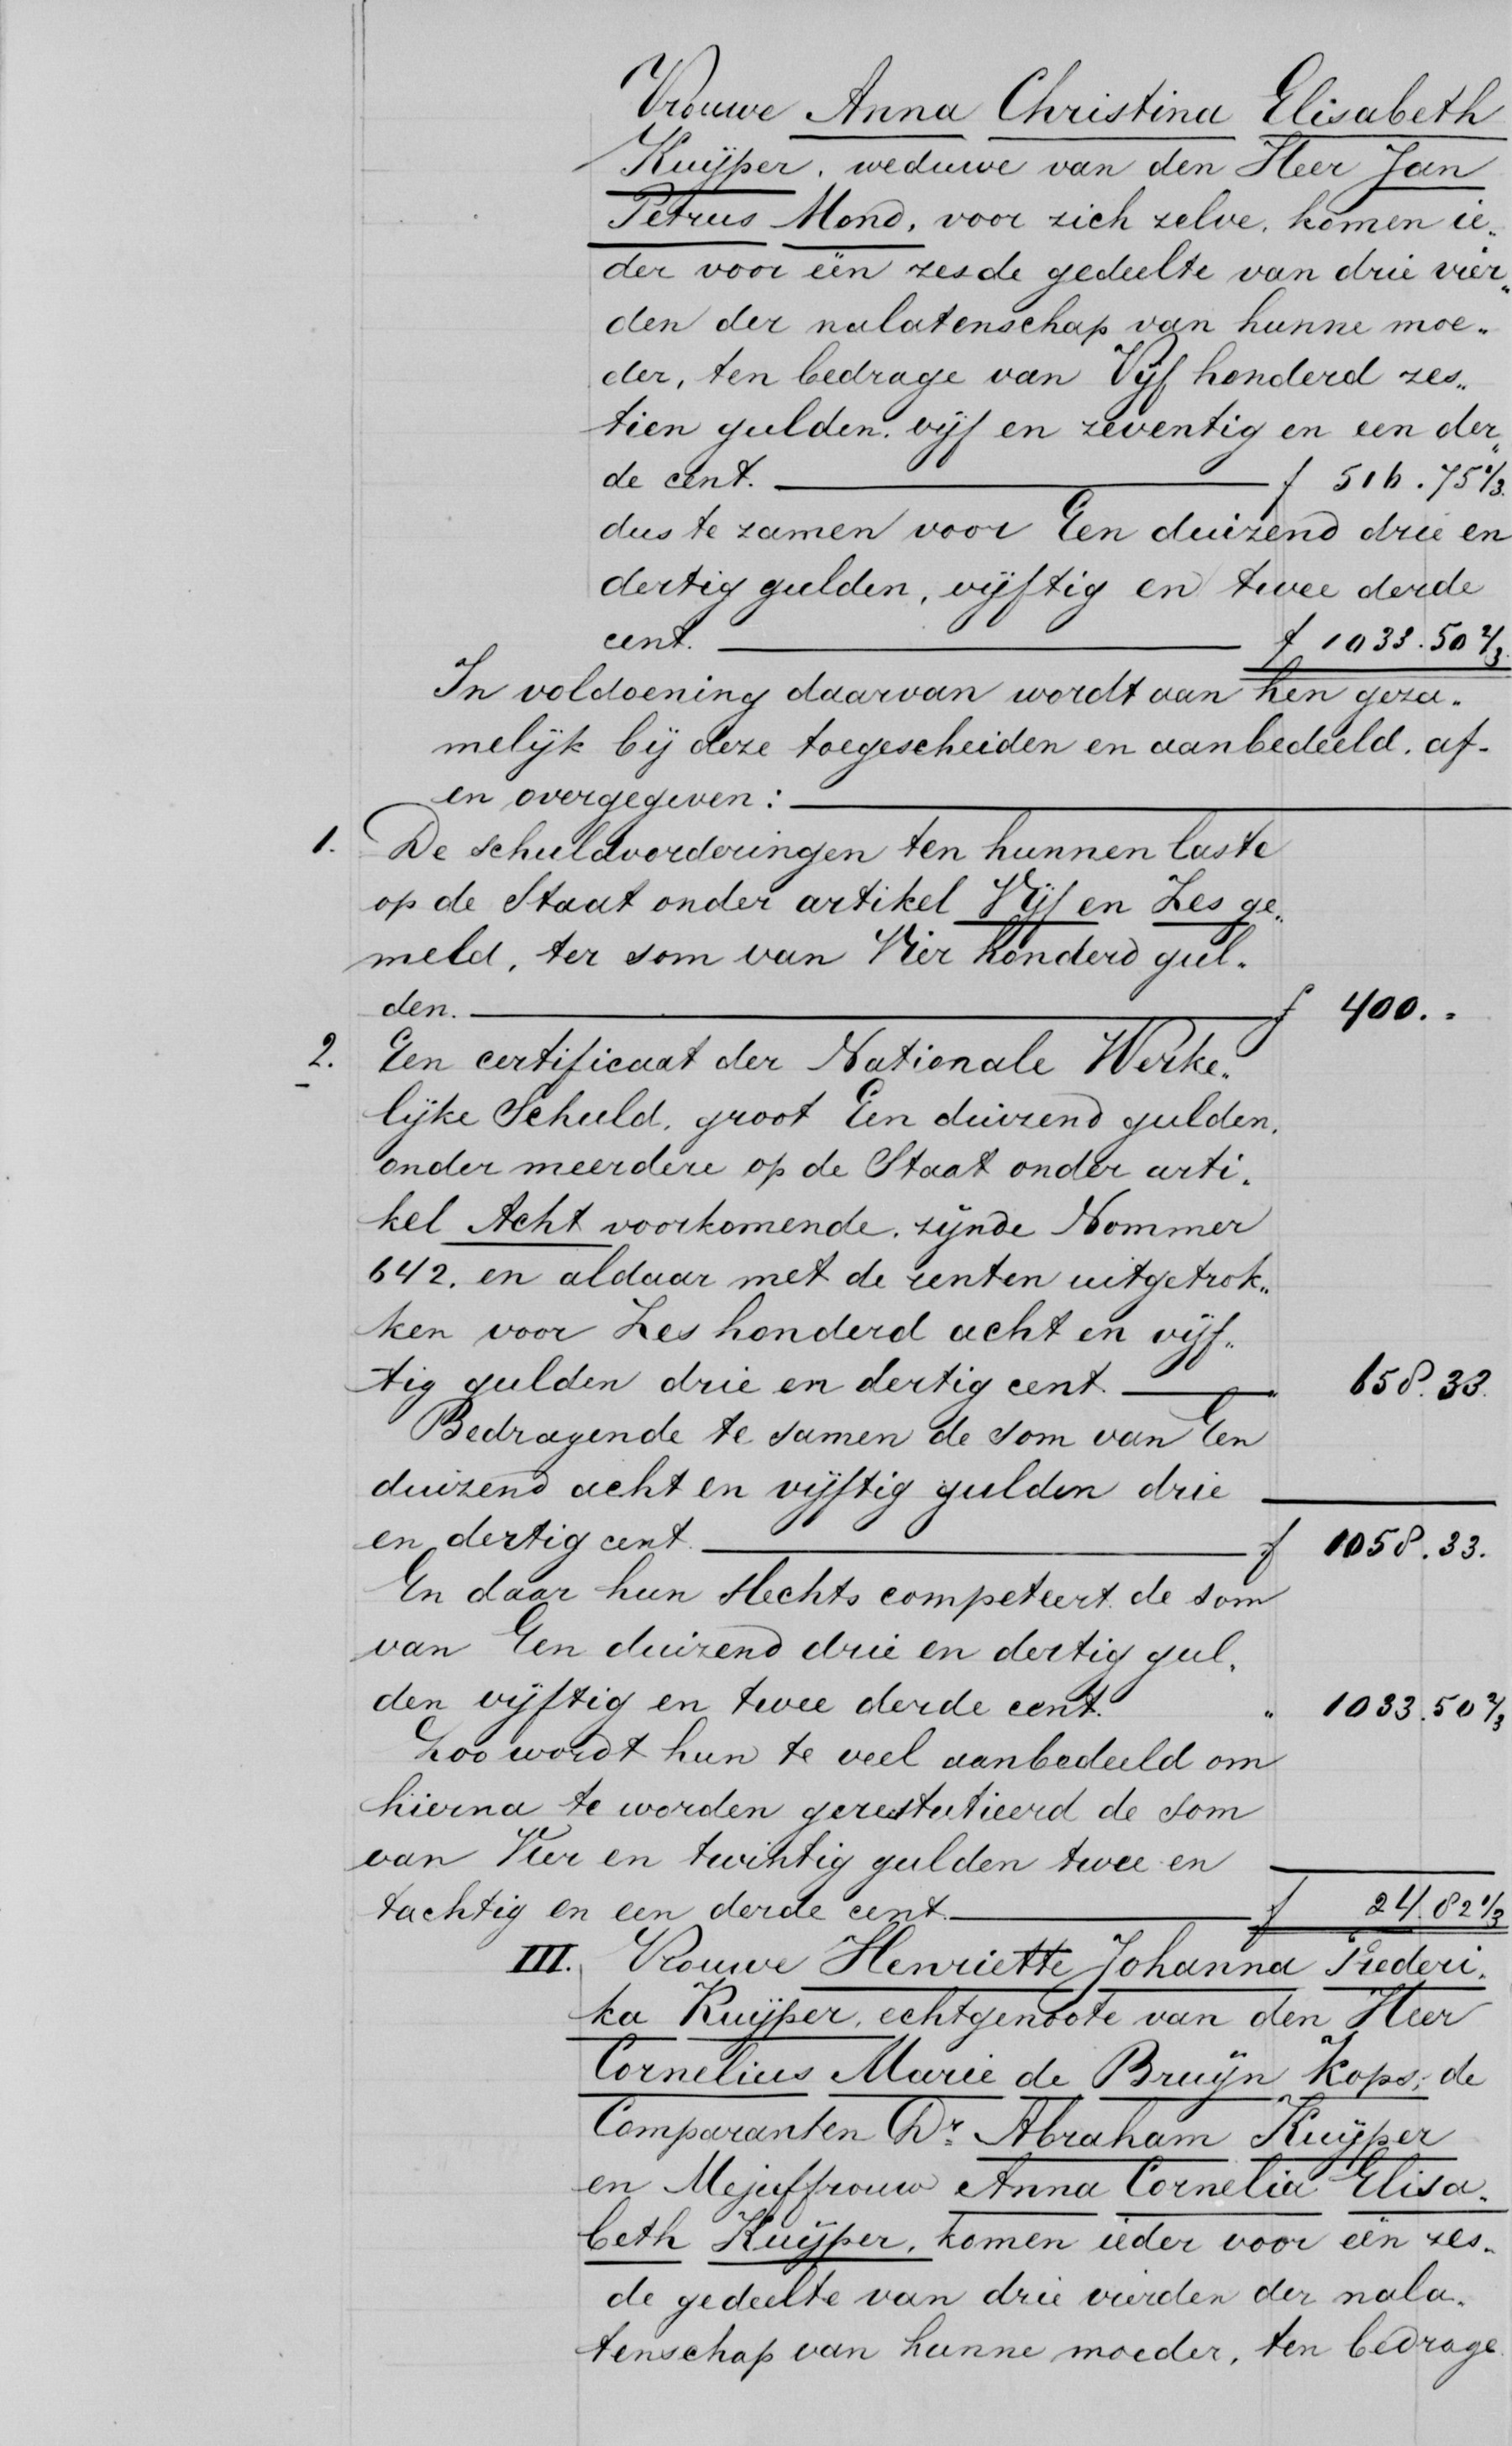 Vrouwe Anna Christina Elisabeth
Kuijper, weduwe van den Heer Jan
Petrus Mond, voor zich zelve, komen ie„
der voor één zesde gedeelte van drie vier„
den der nalatenschap van hunne moe„
der, ten bedrage van Vijf honderd zes„
tien gulden, vijf en zeventig en een der„
de cent. f 516.75⅓.
dus te zamen voor Een duizend drie en
dertig gulden, vijftig en twee derde
cent. f 1033.50⅔.
In voldoening daarvan wordt aan hen geza„
melijk bij deze toegescheiden en aanbedeeld, af-
en overgegeven:
1. De schuldvorderingen ten hunnen laste
op de Staat onder artikel Vijf en Zes ge„
meld, ter som van Vier honderd gul„
den. f 400.„
2. Een certificaat der Nationale Werke„
lijke Schuld, groot Een duizend gulden,
onder meerdere op de Staat onder arti„
kel Acht voorkomende, zijnde Nommer
642, en aldaar met de renten uitgetrok„
ken voor Zes honderd acht en vijf„
tig gulden drie en dertig cent. „ 658.33.
Bedragende te samen de som van Een
duizend acht en vijftig gulden drie
en dertig cent. f 1058.33.
En daar hun slechts competeert de som
van Een duizend drie en dertig gul„
den vijftig en twee derde cent. „ 1033.50⅔
Zoo wordt hun te veel aanbedeeld om
hierna te worden gerestutieerd de som
van Vier en twintig gulden twee en
tachtig en een derde cent. f 24.82⅓
III. Vrouwe Henriette Johanna Frederi„
ka Kuijper, echtgenoote van den Heer
Cornelius Marie de Bruijn Kops, de
Comparanten Dr. Abraham Kuijper
en Mejuffrouw Anna Cornelia Elisa„
beth Kuijper, komen ieder voor één zes„
de gedeelte van drie vierden der nala„
tenschap van hunne moeder, ten bedrage